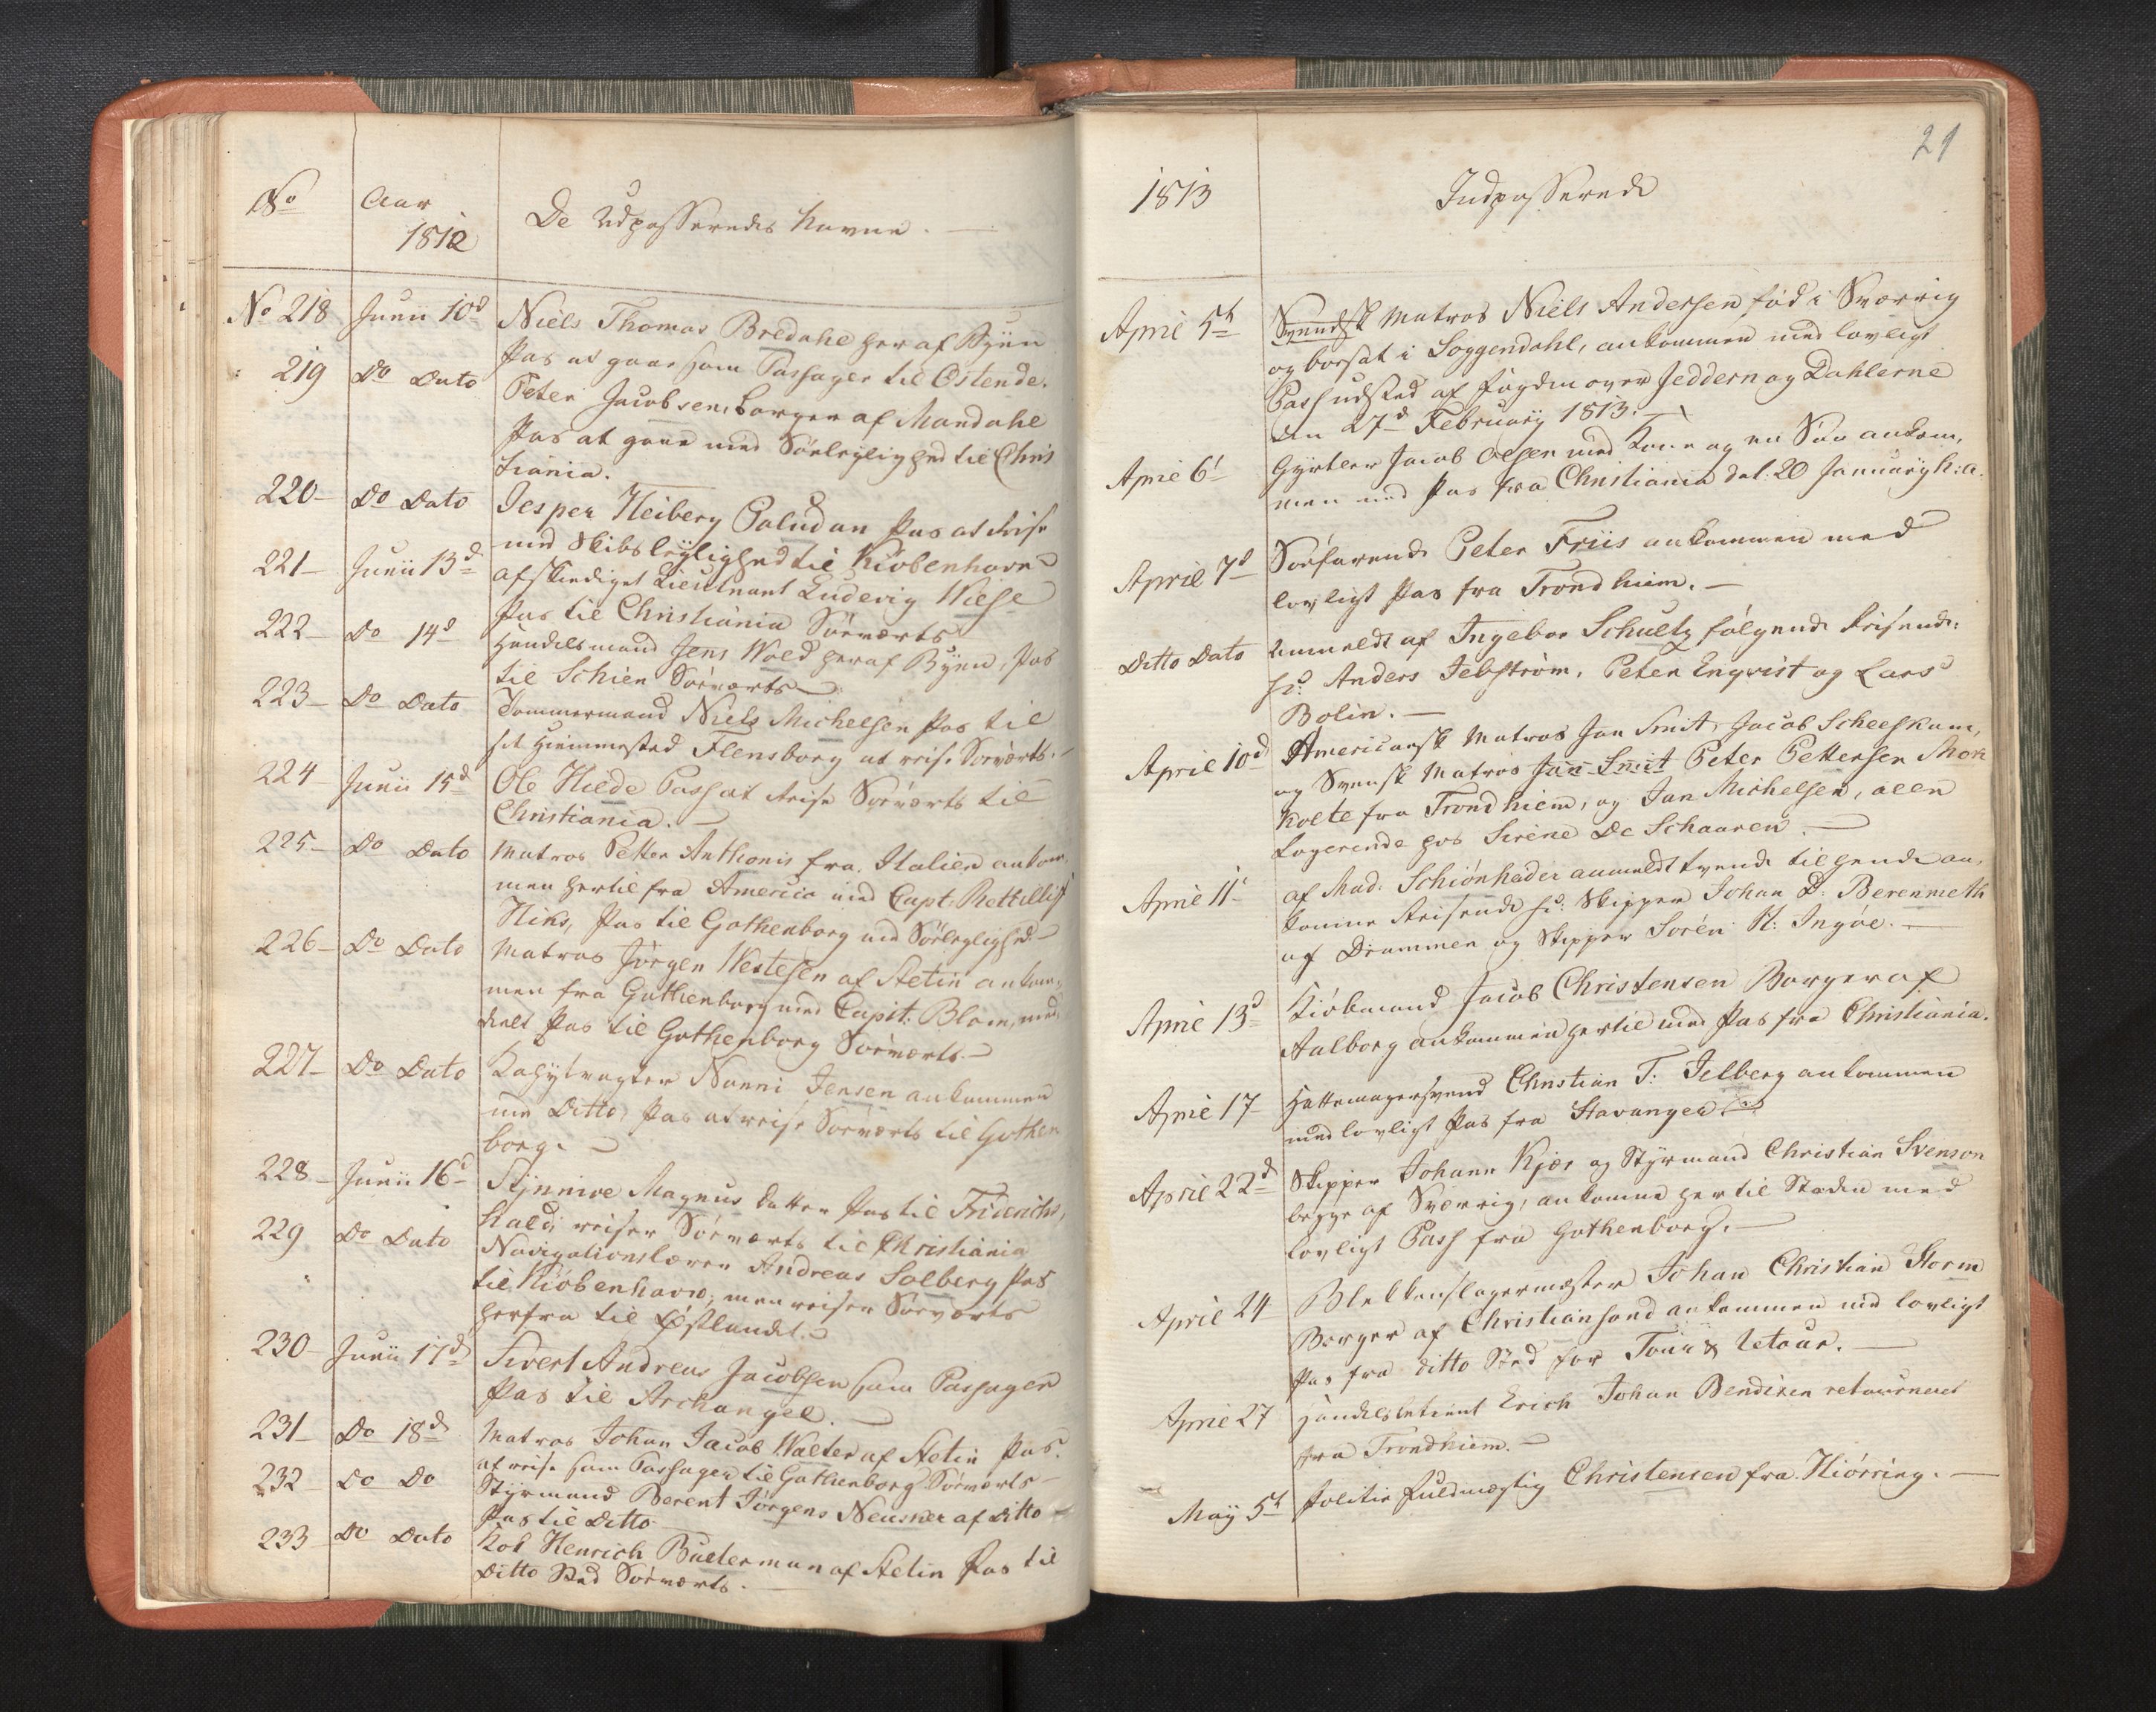 No
Aar
1812
De Udpasseredes Navne. —
No 218 Junii 10d Niels Thomas Bredahl her af Byen
Pas at gaae som Passager til Ostende.
219 Do Dato Peter Jacobsen, borger af Mandahl
Pas at gaae med Söeleylighed til Chris
tiania.
220 Do Dato Jesper Heiberg Paludan Pas at Reise
med Skibsleylighed til Kiöbenhavn
221 Junii 13d afskediget Lieutnant Ludevig Wiese
Pas til Christiania Söeværts
222 Do 14d Handelsmand Jens Wold heraf Byen, Pas
til Schien Söeværts
223 Do Dato Tommermand Niels Michelsen Pas til
sit Hiemmested Flensborg at reise Söeværts. —
224 Junii 15d Ole Hilde Pass at Reise Söeværts til
Christiania. —
225 Do Dato Matros Petter Anthonis fra Italien ankom,
men hertil fra America med Capt.
Hiks, Pas til Gothenborg med Söeleylighed —
226 Do Dato Matros Jörgen Westesen af Stetin ankom,
men fra Gothenborg med Capit: Blom, med,
delt Pas til Gothenborg Söeværts. —
227 Do Dato Kahytvagter Nanni Jensen ankommen
med Ditto, Pas at reise Söeværts til Gothen
borg. —
228 Junii 16d Synnive Magnus datter Pas til Friderichs,
hald, reiser Söeværts til Christiania
229 Do Dato Navigationslærer Andreas Solberg Pas
til Kiöbenhavn, men reiser Söeværts
herfra til Östlandet.
230 Junii 17d Sivert Andreas Jacobsen som Passager
Pas til Archangel. —
231 Do 18d Matros Johan Jacob Walter af Stetin Pas
at reise som Passager til Gothenborg Söeværts —
232 Do Do Styrmand Berent Jörgens Neusner af Ditto
Pas til Ditto
233 Do Dato Kok Henrich Buelerman af Stetin Pas til
Ditto Sted Söeværts. —
21
1813
Indpasserede
April 5t Svendsk Matros Niels Andersen föd i Sverrig
og boesat i Soggendahl, ankommen med lovligt
Pass udsted af fogden over Jeddern og Dahlerne
den 27d Februarÿ 1813. —
April 6t Gyrtler Jacob Olsen med Kone og en Sön ankom,
men med Pas fra Christiania dat: 20 Januarÿ h: a.
April 7d Söefarende Peter Friis ankommen med
lovligt Pas fra Trondhiem. —
Ditto Dato Anmeldt af Ingebor Schultz fölgende Reisende:
sc: Anders Jebström, Peter Enqvist og Lars
Bolin. —
April 10d Americansk Matros Jan Smit, Jacob Scheeskam,
og Svensk Matros Jan Smit Peter Pettersen Mon
kolte fra Trondhiem, og Jan Michelsen, alle
Logerende hos Sirene De Schaaren. —
April 11t af Mad: Schiönheder anmeldt tvende til hende an,
komne Reisende sc: Skipper Johan D: Berenmeth
af Drammen og Skipper Sören H: Ingöe. —
April 13d Kiöbmand Jacob Christensen Borger af
Aalborg ankommen hertil med Pas fra Christiania.
April 17 Hattemagersvend Christian T: Jelberg ankommen
med lovligt Pas fra Stavanger
April 22d Skipper Johann Kjær og Styrmand Christian Svenson
begge af Sverrig, ankomne hertil Staden med
lovligt Pass fra Gothenborg. —
April 24 Blekkenslagermester Johan Christian Storm
Borger af Christiansand ankommen med lovligt
Pas fra ditto Sted for Tour & Retour. —
April 27 Handelsbetient Erich Johan Bendixen retourneret
fra Trondhiem. —
Maÿ 5t Politie fuldmægtig Christensen fra Hiörring. —